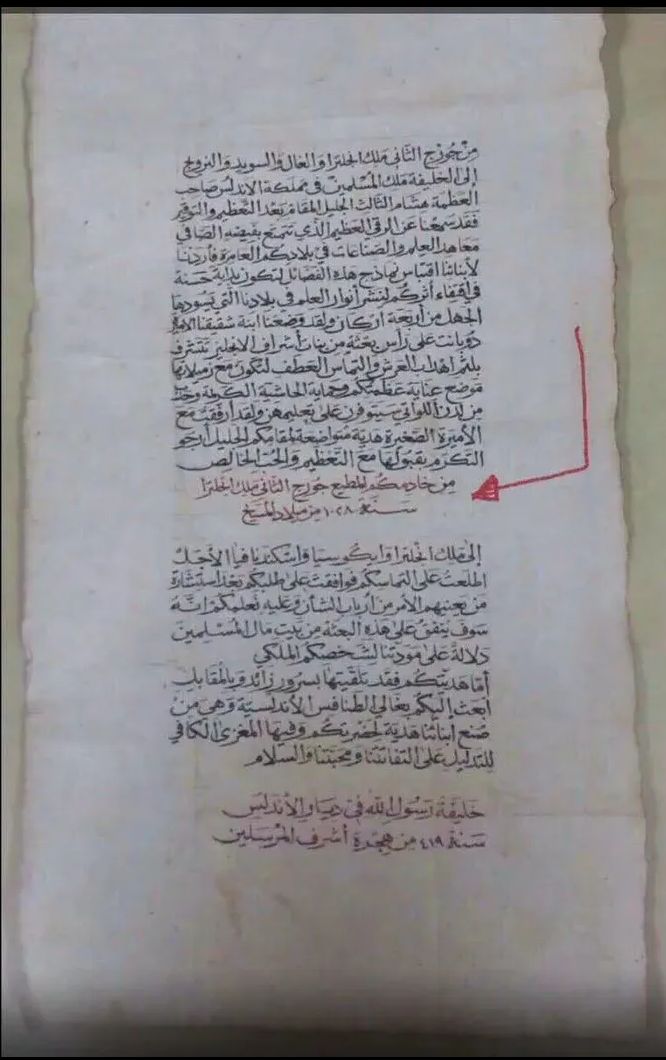 من جورج الثاني ملك انجلترا والغال والسويد والنرويج
إلى الخليفة ملك المسلمين في مملكة الاندلس صاحب
العظمة هشام الثالث الجليل المقام بعد التعظيم والتوقير
فقد سمعنا عن الرقي العظيم الذي تتمتع بفيضه الصافي
معاهد العلم والصناعات في بلادكم العامرة فأردنا
لأبنائنا اقتباس نماذج هذه الفضائل لتكون بداية حسنة
في اقتفاء أثركم لنشر أنوار العلم في بلادنا التي يسودها
الجهل من أربعة اركان ولقد وضعنا ابنة شقيقنا الاميرة
دوبانت على رأس بعثة من بنات أشراف الانجليز تتشرف
بلثم اهداب العرش والتماس العطف لتكون مع زميلاتها
موضع عناية عظمتكم وحماية الحاشية الكريمة
من لدن اللواتي سيتوفرن على تعليمهن ولقد أرفقت مع
الأميرة الصغيرة هدية متواضعة لمقامكم الجليل أرجو
التكرم بقبولها مع التعظيم والحب الخالص
من خادمكم المطيع جورج الثاني ملك انجلترا
سنة ١٠٢٨ من ميلاد المسيح
إلى ملك انجلترا وايكوسيا واسكندنافيا الأجل
اطلعت على التماسكم فوافقت على طلبكم بعد استشارة
من يعنيهم الأمر من ارباب الشأن وعليه نعلمكم انه
سوف ينفق على هذه البعثة من بيت مال المسلمين
دلالة على مودتنا لشخصكم الملكي
أما هديتكم فقد تلقيتها بسرور زائد وبالمقابل
أبعث إليكم بغالي الطنافس الأندلسية وهي من
صنع ابنائنا هدية لحضرتكم وفيها المغزى الكافي
للتدليل على التفاتتنا ومحبتنا والسلام
خليفة رسول الله في ديار الأندلس
سنة ٤١٩ من هجرة أشرف المرسلين